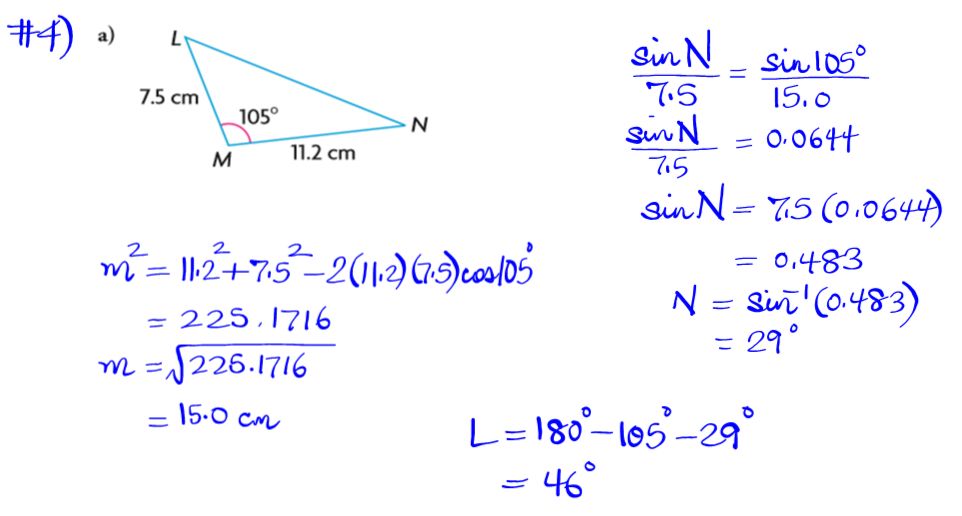 #4) a)
L
7.5 cm
105°
N
M
11.2 cm
m² = 11.2² + 7.5² − 2(11.2)(7.5)cos105°
= 225.1716
m = √225.1716
= 15.0 cm
sin N / 7.5 = sin 105° / 15.0
sin N / 7.5 = 0.0644
sin N = 7.5 (0.0644)
= 0.483
N = sin⁻¹(0.483)
= 29°
L = 180° − 105° − 29°
= 46°